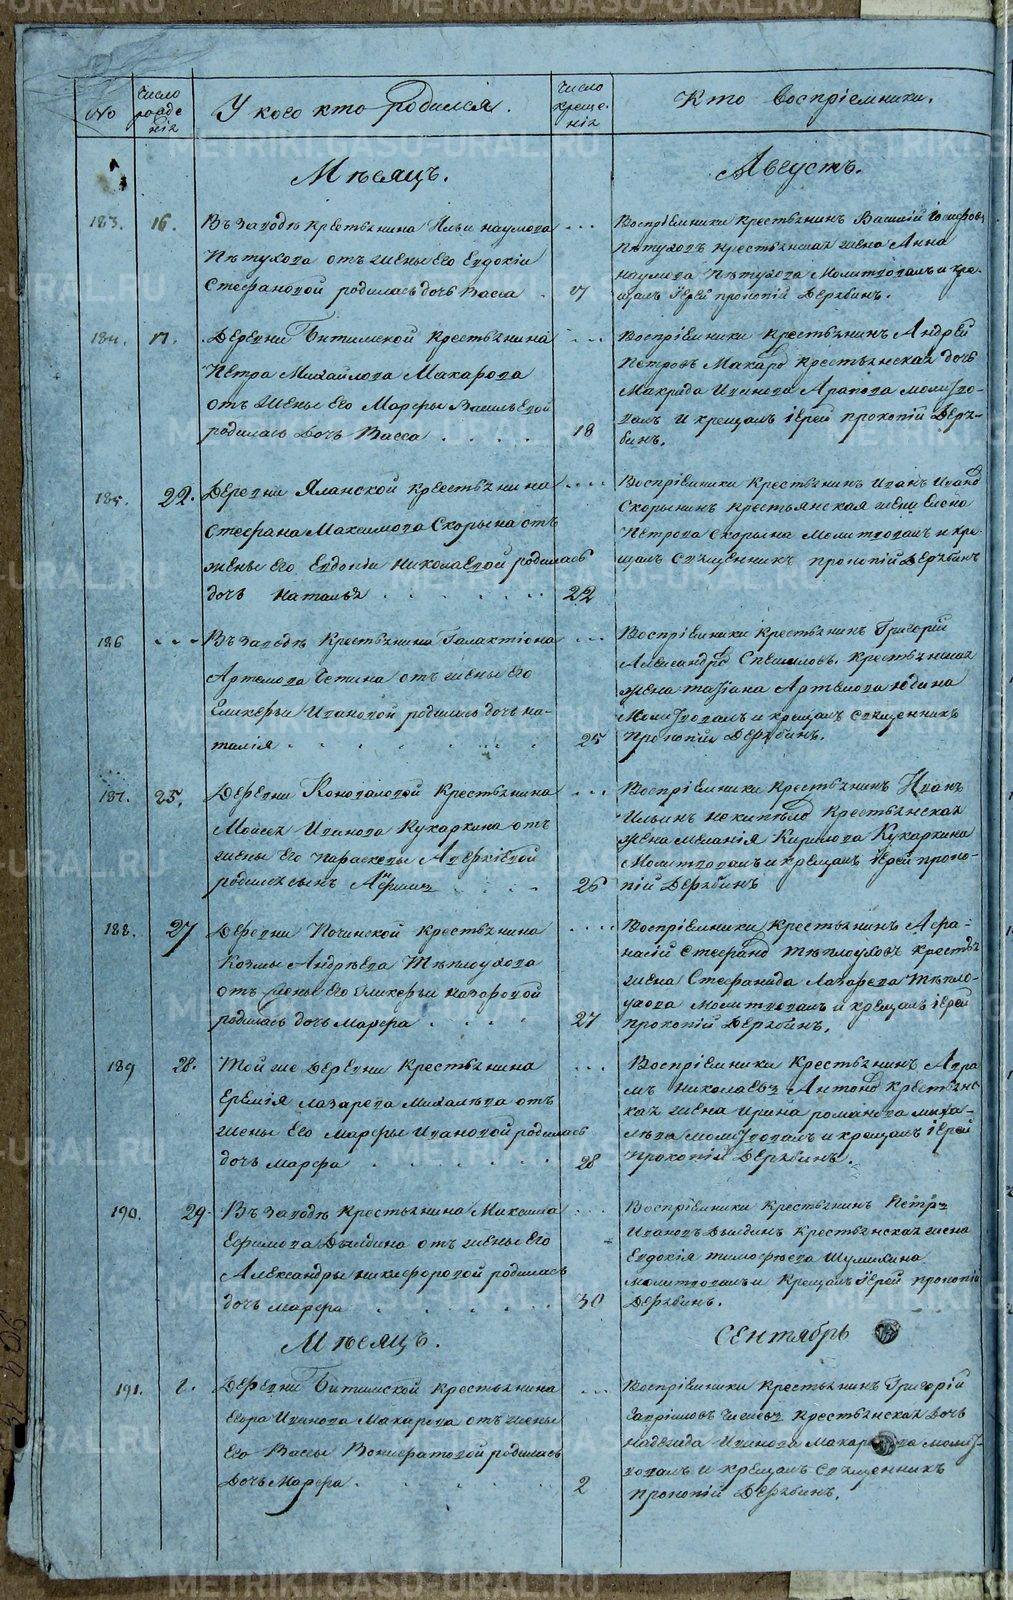 No
Число рожденія
У кого кто родился.
Число крещенія
Кто воспріемники.
Мѣсяцъ.
Августъ.
183. 16.
Въ заводѣ крестьянина Ильи Наумова
Пѣтухова отъ жены его Евдокіи
Стефановой родилась дочь Васса . 17
Воспріемники крестьянинъ Василій
Пѣтуховъ крестьянская жена Анна
Наумова Пѣтухова Молитвовалъ и кре-
щалъ Іерей Прокопій Дерябинъ.
184. 17.
Деревни Битимской крестьянина
Петра Михайлова Макарова
отъ жены его Марфы Васильевой
родилась дочь Васса . . . . . 18
Воспріемники крестьянинъ Андрей
Петровъ Макаровъ крестьянская дочь
Макрида Иванова Арапова молитво-
валъ и крещалъ Іерей Прокопій Деря-
бинъ.
185. 22.
Деревни Яланской крестьянина
Стефана Максимова Скорына отъ
жены его Евдокіи Николаевой родилась
дочь Наталья . . . . . . 22
Воспріемники крестьянинъ Иванъ Ивановъ
Скорынинъ крестьянская жена Елена
Петрова Скорына Молитвовалъ и кре-
щалъ Священникъ Прокопій Дерябинъ
186 ---
Въ заводѣ крестьянина Галактіона
Артемова Четина отъ жены его
Гликерьи Ивановой родилась дочь На-
талія . . . . . . 25
Воспріемники крестьянинъ Григорій
Александровъ Спешиловъ. крестьянская
жена Татіана Артемова Юдина
Молитвовалъ и крещалъ Священникъ
Прокопій Дерябинъ.
187. 25.
Деревни Коноваловой крестьянина
Мойсея Иванова Кукаркина отъ
жены его Параскевы Аверкіевой
родился сынъ . . . 26
Воспріемники крестьянинъ Иванъ
Ильинъ крестьянская
жена Меланія Кирилова Кукаркина
Молитвовалъ и крещалъ Іерей Проко-
пій Дерябинъ
188. 27
Деревни Починской крестьянина
Козмы Андрѣева Тѣплоухова
отъ жены его Гликерьи Назаровой
родилась дочь Марфа . . . . 27
Воспріемники крестьянинъ Афа-
насій Стефановъ Тѣплоуховъ крестья
жена Стефанида Лазарева Тѣпло-
ухова молитвовалъ и крещалъ Іерей
Прокопій Дерябинъ.
189 28.
Той же Деревни крестьянина
Еремія Лазарева Михалева отъ
жены его Марфы Ивановой родилась
дочь Марфа . . . . . . 28
Воспріемники крестьянинъ Авра
мъ Николаевъ Антоновъ крестьянс
кая жена Ирина Романова Миха-
лева Молитвовалъ и крещалъ Іерей
Прокопій Дерябинъ.
190. 29.
Въ заводѣ крестьянина Михаила
Ефимова Дылдина отъ жены его
Александры Никифоровой родилась
дочь Марфа . . . . . . 30
Воспріемники крестьянинъ Петръ
Ивановъ Дылдинъ крестьянская жена
Евдокія Тимофѣева Шулихина
молитвовалъ и крещалъ Іерей Прокопій
Дерябинъ.
Мѣсяцъ.
Сентябрь
191. 1.
Деревни Битимской крестьянина
Егора Иванова Макарова отъ жены
его Вассы Вонифатовой родилась
дочь Марфа . . . . . . 2
Воспріемники крестьянинъ Григорій
Гавриловъ крестьянская дочь
Надежда Иванова Макарова молит-
вовалъ и крещалъ Священникъ
Прокопій Дерябинъ.
METRIKI.GASO-URAL.RU